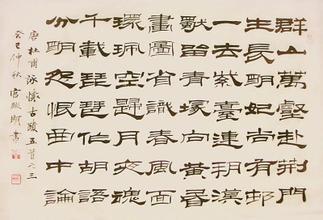 群山萬壑赴荊門
生長明妃尚有邨
一去紫臺連朔漠
獨留青塚向黃昏
畫圖省識春風面
環珮空歸月夜魂
千載琵琶作胡語
分明怨恨曲中論
唐杜甫詠懷古跡五首之三
癸巳仲秋書